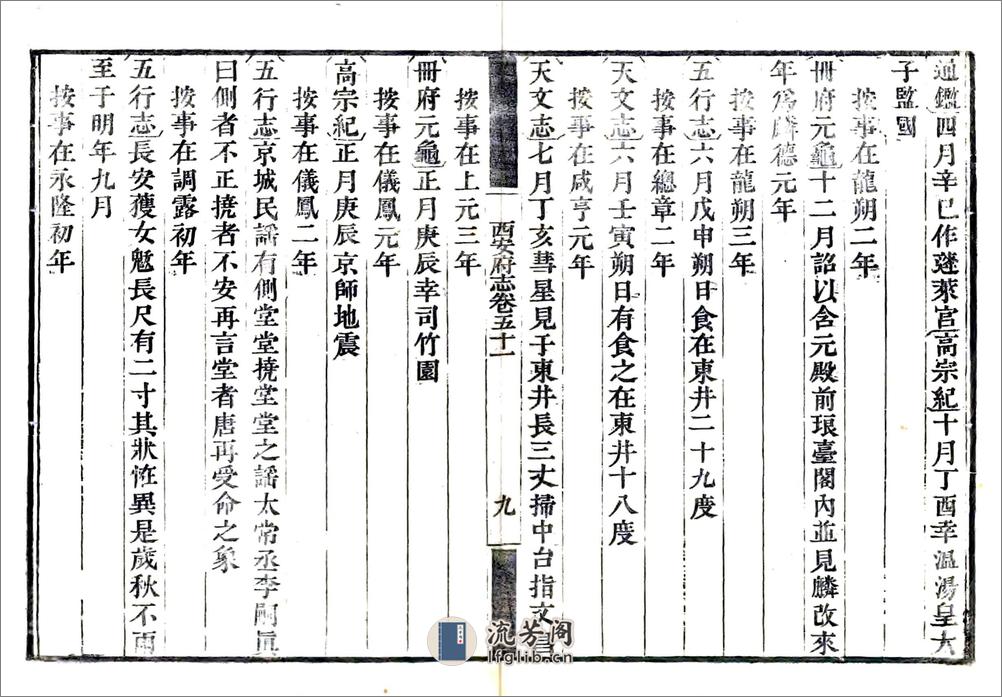 通鑑四月辛巳作蓬萊宮高宗紀十月丁酉幸溫湯皇太
子監國
按事在龍朔二年
冊府元龜十二月詔以含元殿前琅臺閣內並見麟改來
年為麟德元年
按事在龍朔三年
五行志六月戊申朔日食在東井二十九度
按事在總章二年
天文志六月壬寅朔日有食之在東井十八度
按事在咸亨元年
天文志七月丁亥彗星見于東井長三丈掃中台指文昌
按事在上元三年
西安府志卷五十一
九
冊府元龜正月庚辰幸司竹園
按事在儀鳳元年
高宗紀正月庚辰京師地震
按事在儀鳳二年
五行志京城民謠有側堂堂撓堂堂之謠太常丞李嗣眞
曰側者不正撓者不安再言堂者唐再受命之象
按事在調露初年
五行志長安獲女魃長尺有二寸其狀怪異是歲秋不雨
至于明年九月
按事在永隆初年
流芳阁
lfglib.cn